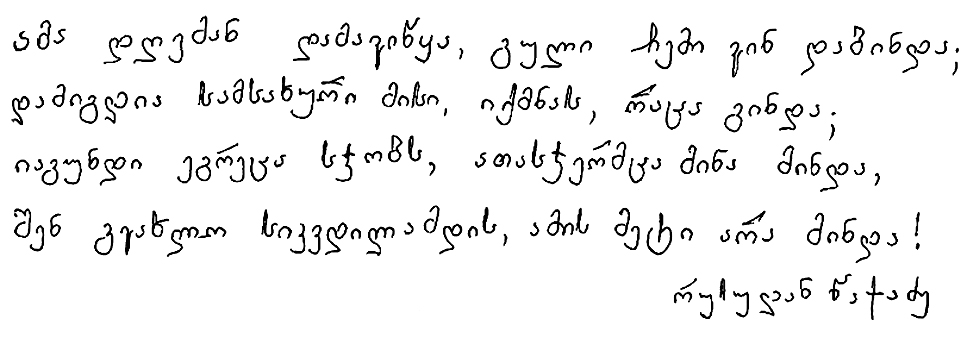 ამა დღემან დამავიწყა, გული ჩემი ვინ დაბინდა;
დამიგდია სამსახური მისი, იქმნას, რაცა გინდა;
იაგუნდი ეგრეცა სჯობს, ათასჯერმცა მინა მინდა,
შენ გეახლო სიკვდილამდის, ამის მეტი არა მინდა!
რუსუდან ნაჭაძე